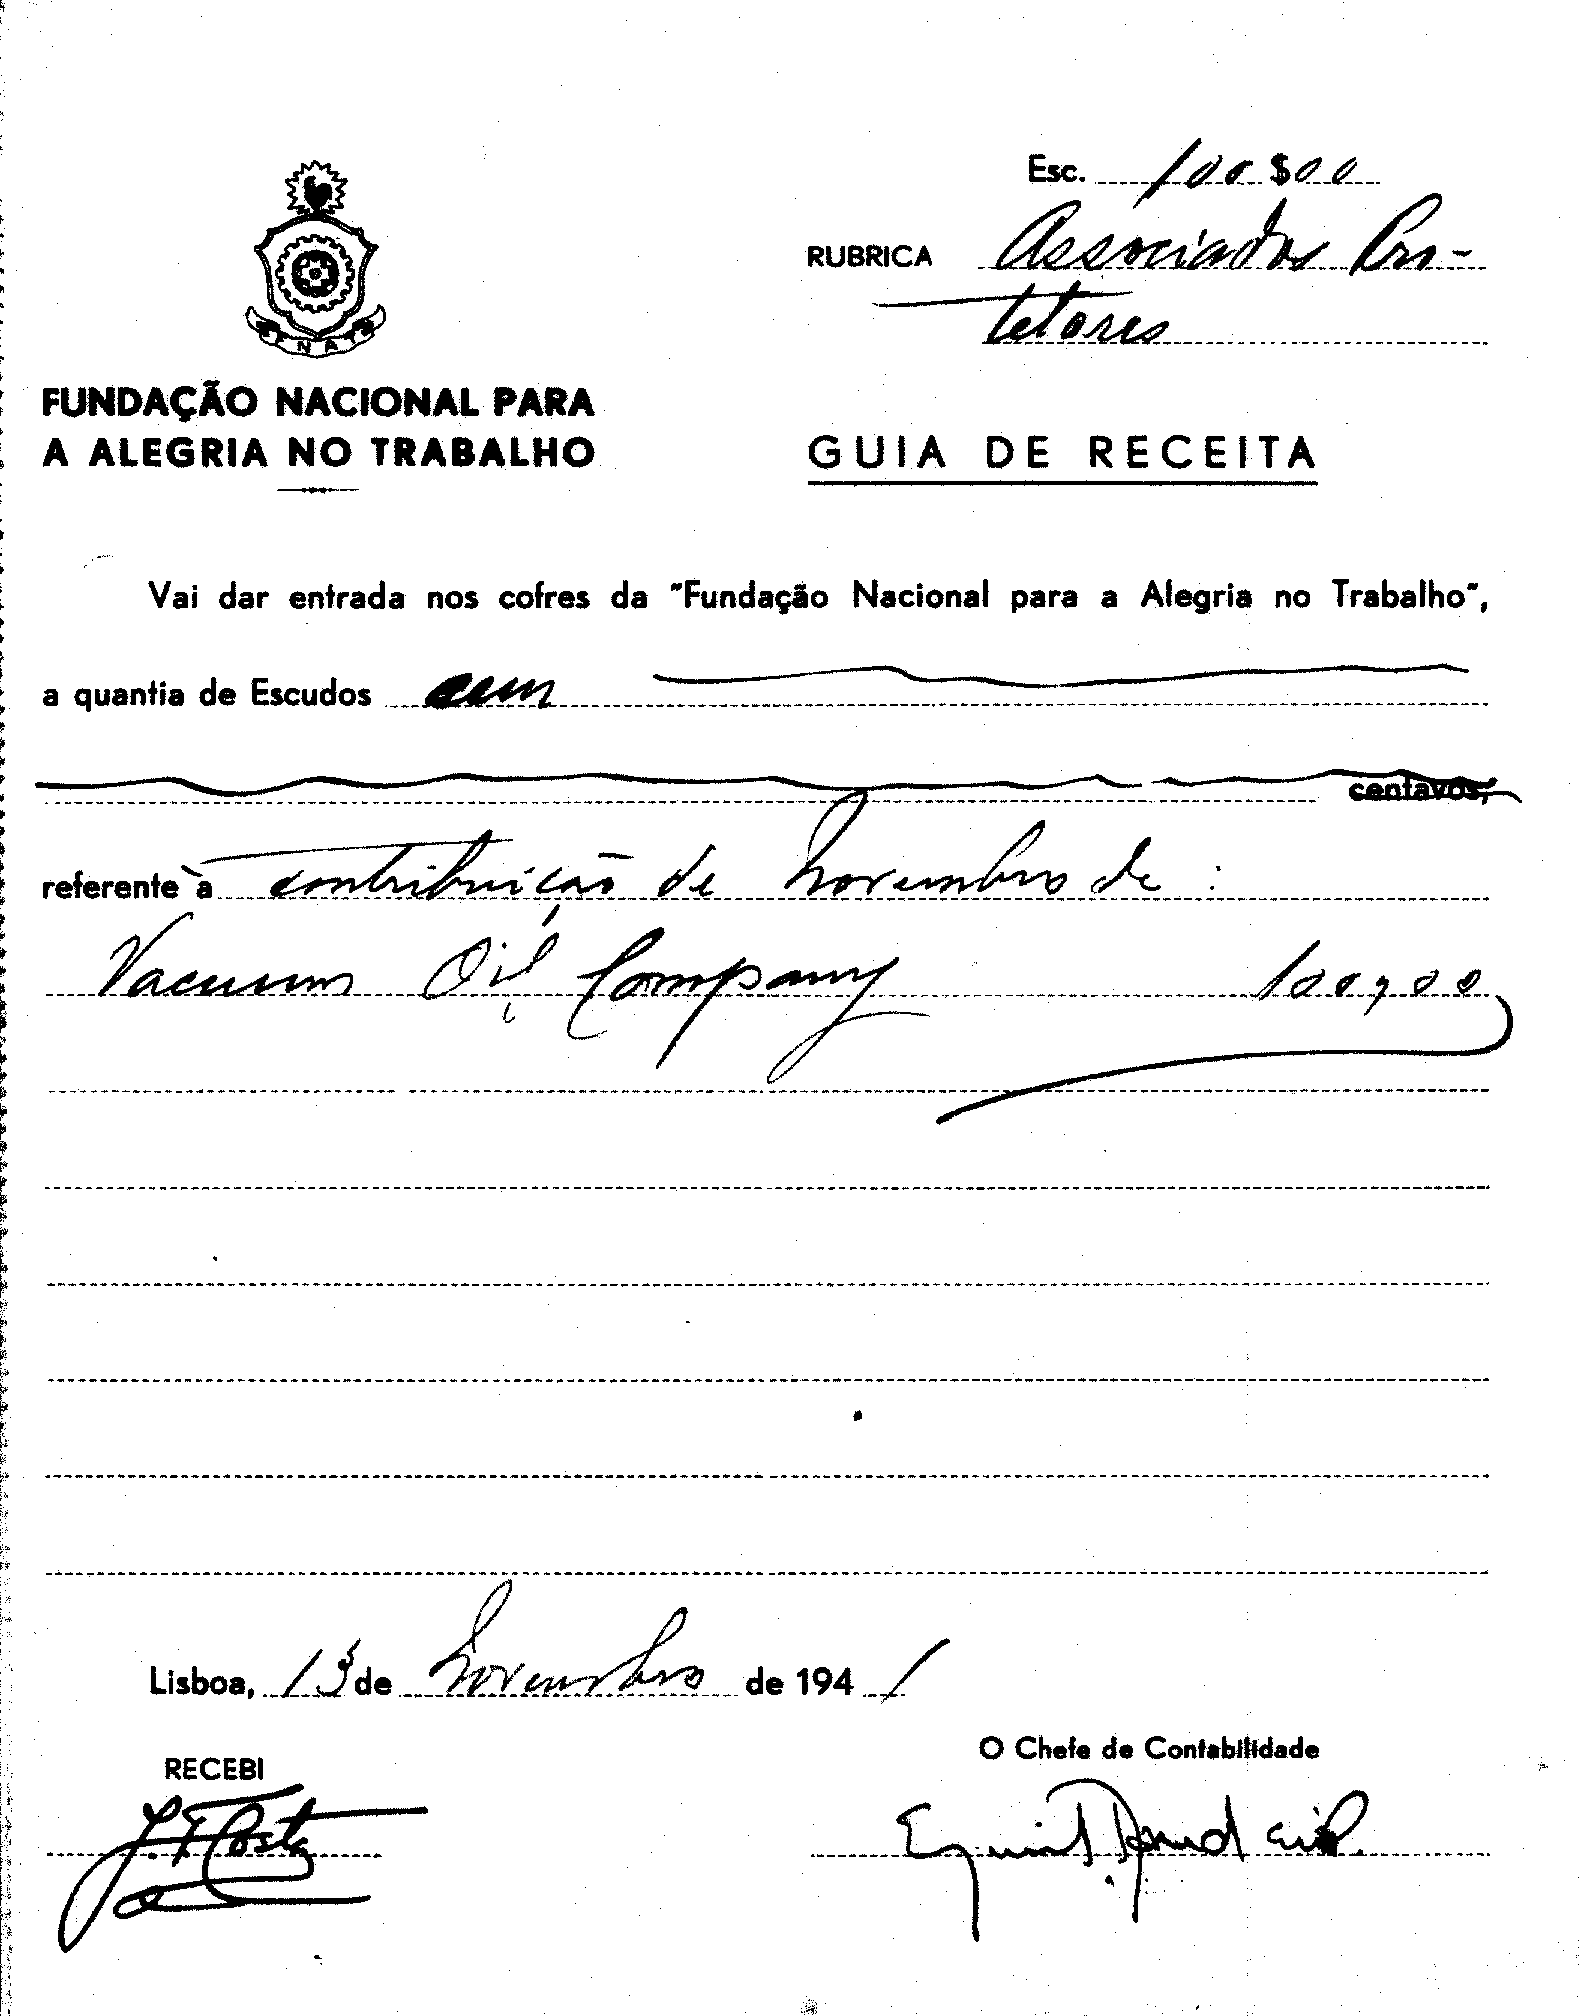 Esc. 100$00
RUBRICA Associados Pro-
tetores
FNAT
FUNDAÇÃO NACIONAL PARA
A ALEGRIA NO TRABALHO
GUIA DE RECEITA
Vai dar entrada nos cofres da "Fundação Nacional para a Alegria no Trabalho",
a quantia de Escudos cem
centavos,
referente à contribuição de Novembro de :
Vacuum Oil Company 100$00
Lisboa, 13 de Novembro de 1941
O Chefe de Contabilidade
RECEBI
J. F. Costa